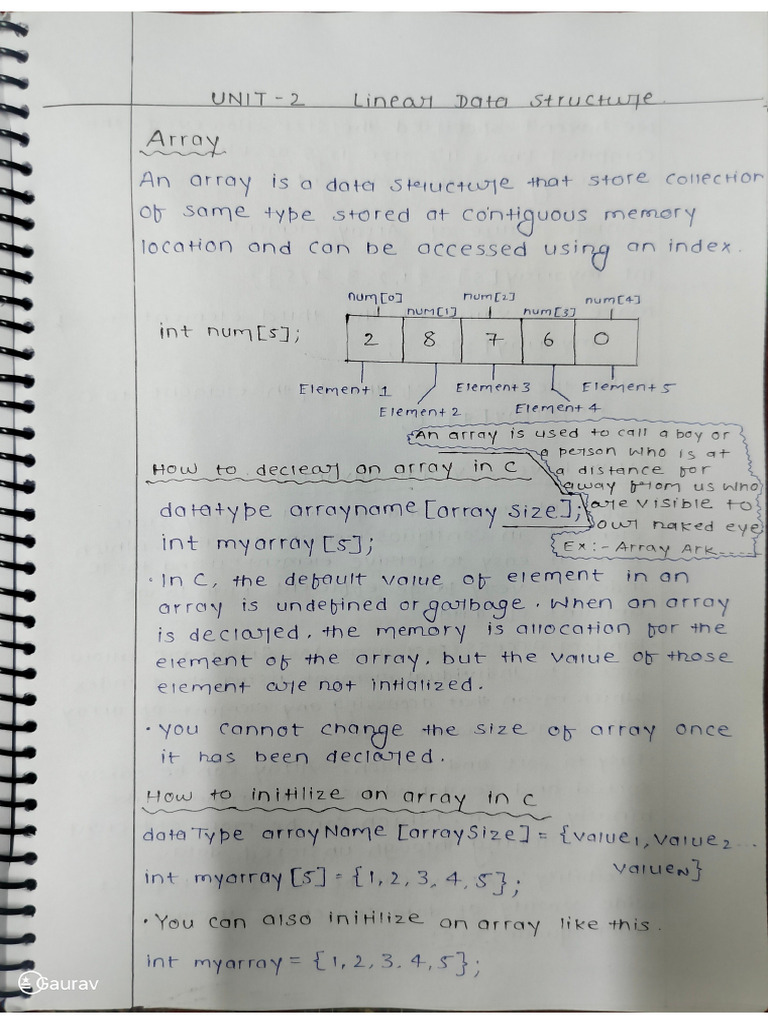 UNIT - 2 Linear Data Structure.
Array
An array is a data structure that store collection
of same type stored at contiguous memory
location and can be accessed using an index.
num[0] num[1] num[2] num[3] num[4]
int num[5]; 2 8 7 6 0
Element 1 Element 2 Element 3 Element 4 Element 5
An array is used to call a boy or
a person who is at
a distance for
away from us who
are visible to
our naked eye
Ex :- Array Ark....
How to declear an array in C
datatype arrayname [array size];
int myarray [5];
· In C, the default value of element in an
array is undefined or garbage. When an array
is declared, the memory is allocation for the
element of the array, but the value of those
element are not intialized.
· you cannot change the size of array once
it has been declared.
How to initilize an array in C
dataType arrayName [arraySize] = {value1, value2 ...
valueN}
int myarray [5] = {1, 2, 3, 4, 5};
· You can also initilize an array like this.
int myarray = {1, 2, 3. 4, 5};
Gaurav